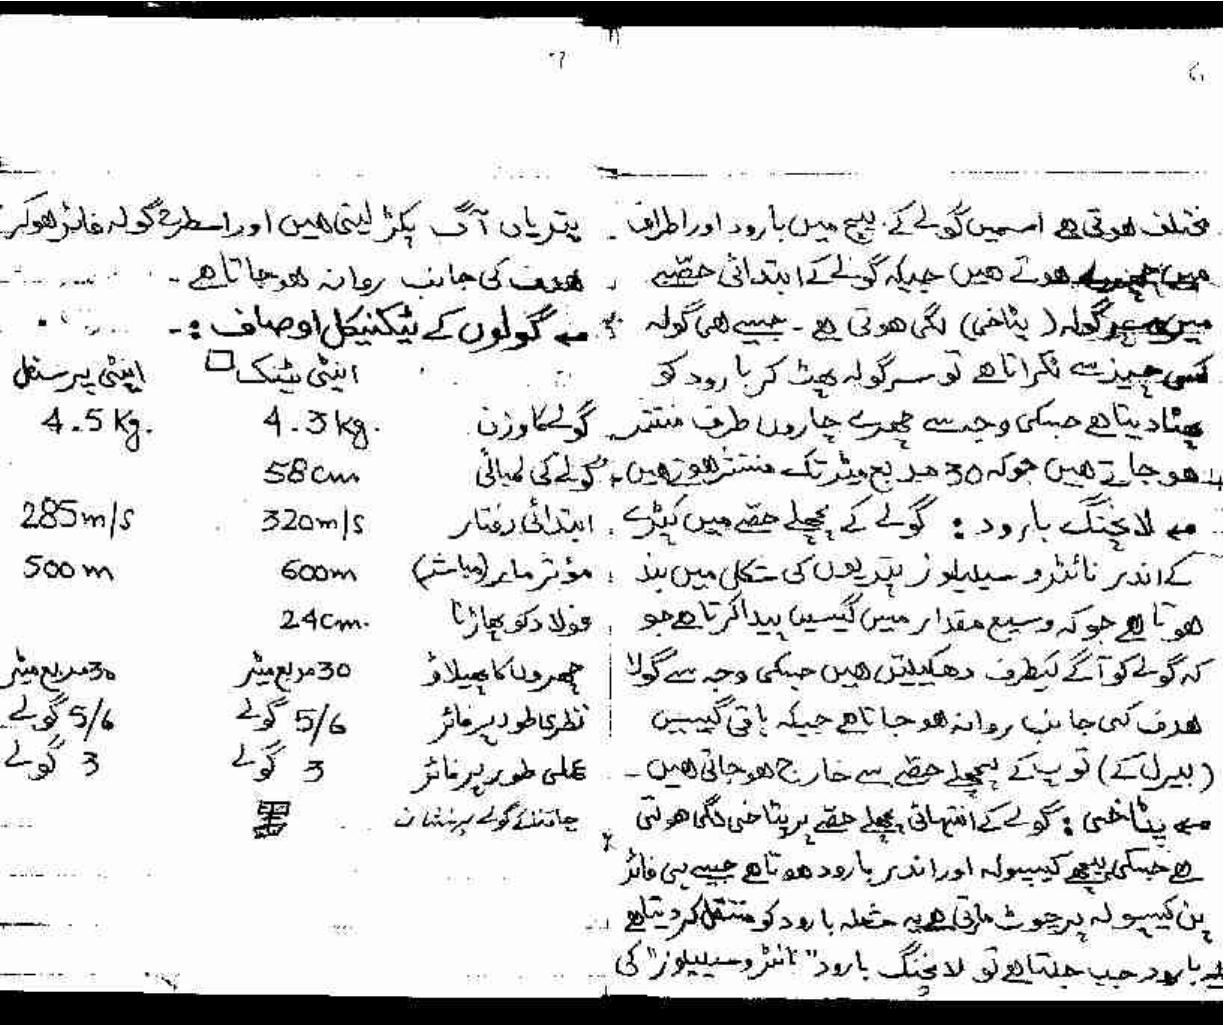 مختلف ھوتی ھے اسمیں گولے کے بیچ میں بارود اور اطراف
میں چھرے ھوتے ھیں جبکہ گولے کے ابتدائی حصّے
میں سرگولہ (پٹاخی) لگی ھوتی ھے ۔ جیسے ھی گولہ
کسی چیز سے ٹکراتا ھے تو سرگولہ پھٹ کر بارود کو
پھٹا دیتا ھے جسکی وجہ سے چھرے چاروں طرف منتشر
ھو جاتے ھیں جوکہ 30 مربع میٹر تک منتشر ھوتے ھیں۔
← لانچنگ بارود : گولے کے پچھلے حصّے میں کپڑے
کے اندر نائٹرو سیلیلوز پتریوں کی شکل میں بند
ھوتا ھے جوکہ وسیع مقدار میں گیسیں پیدا کرتا ھے جو
کہ گولے کو آگے کیطرف دھکیلتی ھیں جسکی وجہ سے گولا
ھدف کی جانب روانہ ھو جاتا ھے جبکہ باقی گیسیں
(بیرل کے) توپ کے پچھلے حصّے سے خارج ھو جاتی ھیں ۔
← پٹاخی : گولے کے انتہائی پچھلے حصّے پر پٹاخی لگی ھوتی
ھے جسکی پیچھے کیپسولہ اور اندر بارود ھوتا ھے جیسے ہی فائر
پن کیپسولہ پر چوٹ مارتی ھے یہ شعلہ بارود کو منتقل کر دیتا ھے
یہ بارود جب جلتا ھے تو لانچنگ بارود "نائٹروسیلیلوز" کی
پتریاں آگ پکڑ لیتی ھیں اور اسطرح گولہ فائر ھوکر
ھدف کی جانب روانہ ھو جاتا ھے ۔
← گولوں کے ٹیکنیکل اوصاف :۔
اینٹی ٹینک اینٹی پرسنل
گولے کا وزن 4.3 kg. 4.5 kg.
گولے کی لمبائی 58 cm
ابتدائی رفتار 320m/s 285m/s
مؤثر مار (مباشر) 600m 500m
فولاد کو پھاڑنا 24cm.
چھروں کا پھیلاؤ 30 مربع میٹر 30 مربع میٹر
نظری طور پر فائر 5/6 گولے 5/6 گولے
عملی طور پر فائر 3 گولے 3 گولے
گولے پر نشان